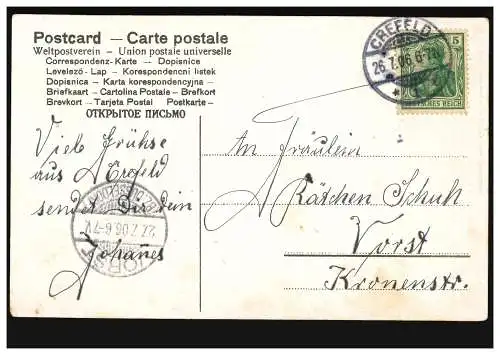 Postcard — Carte postale
Weltpostverein - Union postale universelle
Correspondenz-Karte — Dopisnice
Levelezö-Lap — Korespondencni listek
Dopisnica — Karta korespondencyjna —
Briefkaart — Cartolina Postale — Brefkort
Brevkort — Tarjeta Postal Postkarte —
ОТКРЫТОЕ ПИСЬМО
CREFELD
26.7.06
5
DEUTSCHES REICH
Viele Grühse
aus Crefeld
sendet Dir dein
Johanes
VORST
27.7.06. 6-7 V.
An Fräulein
Kätchen Schuh
Vorst
Kronenstr.